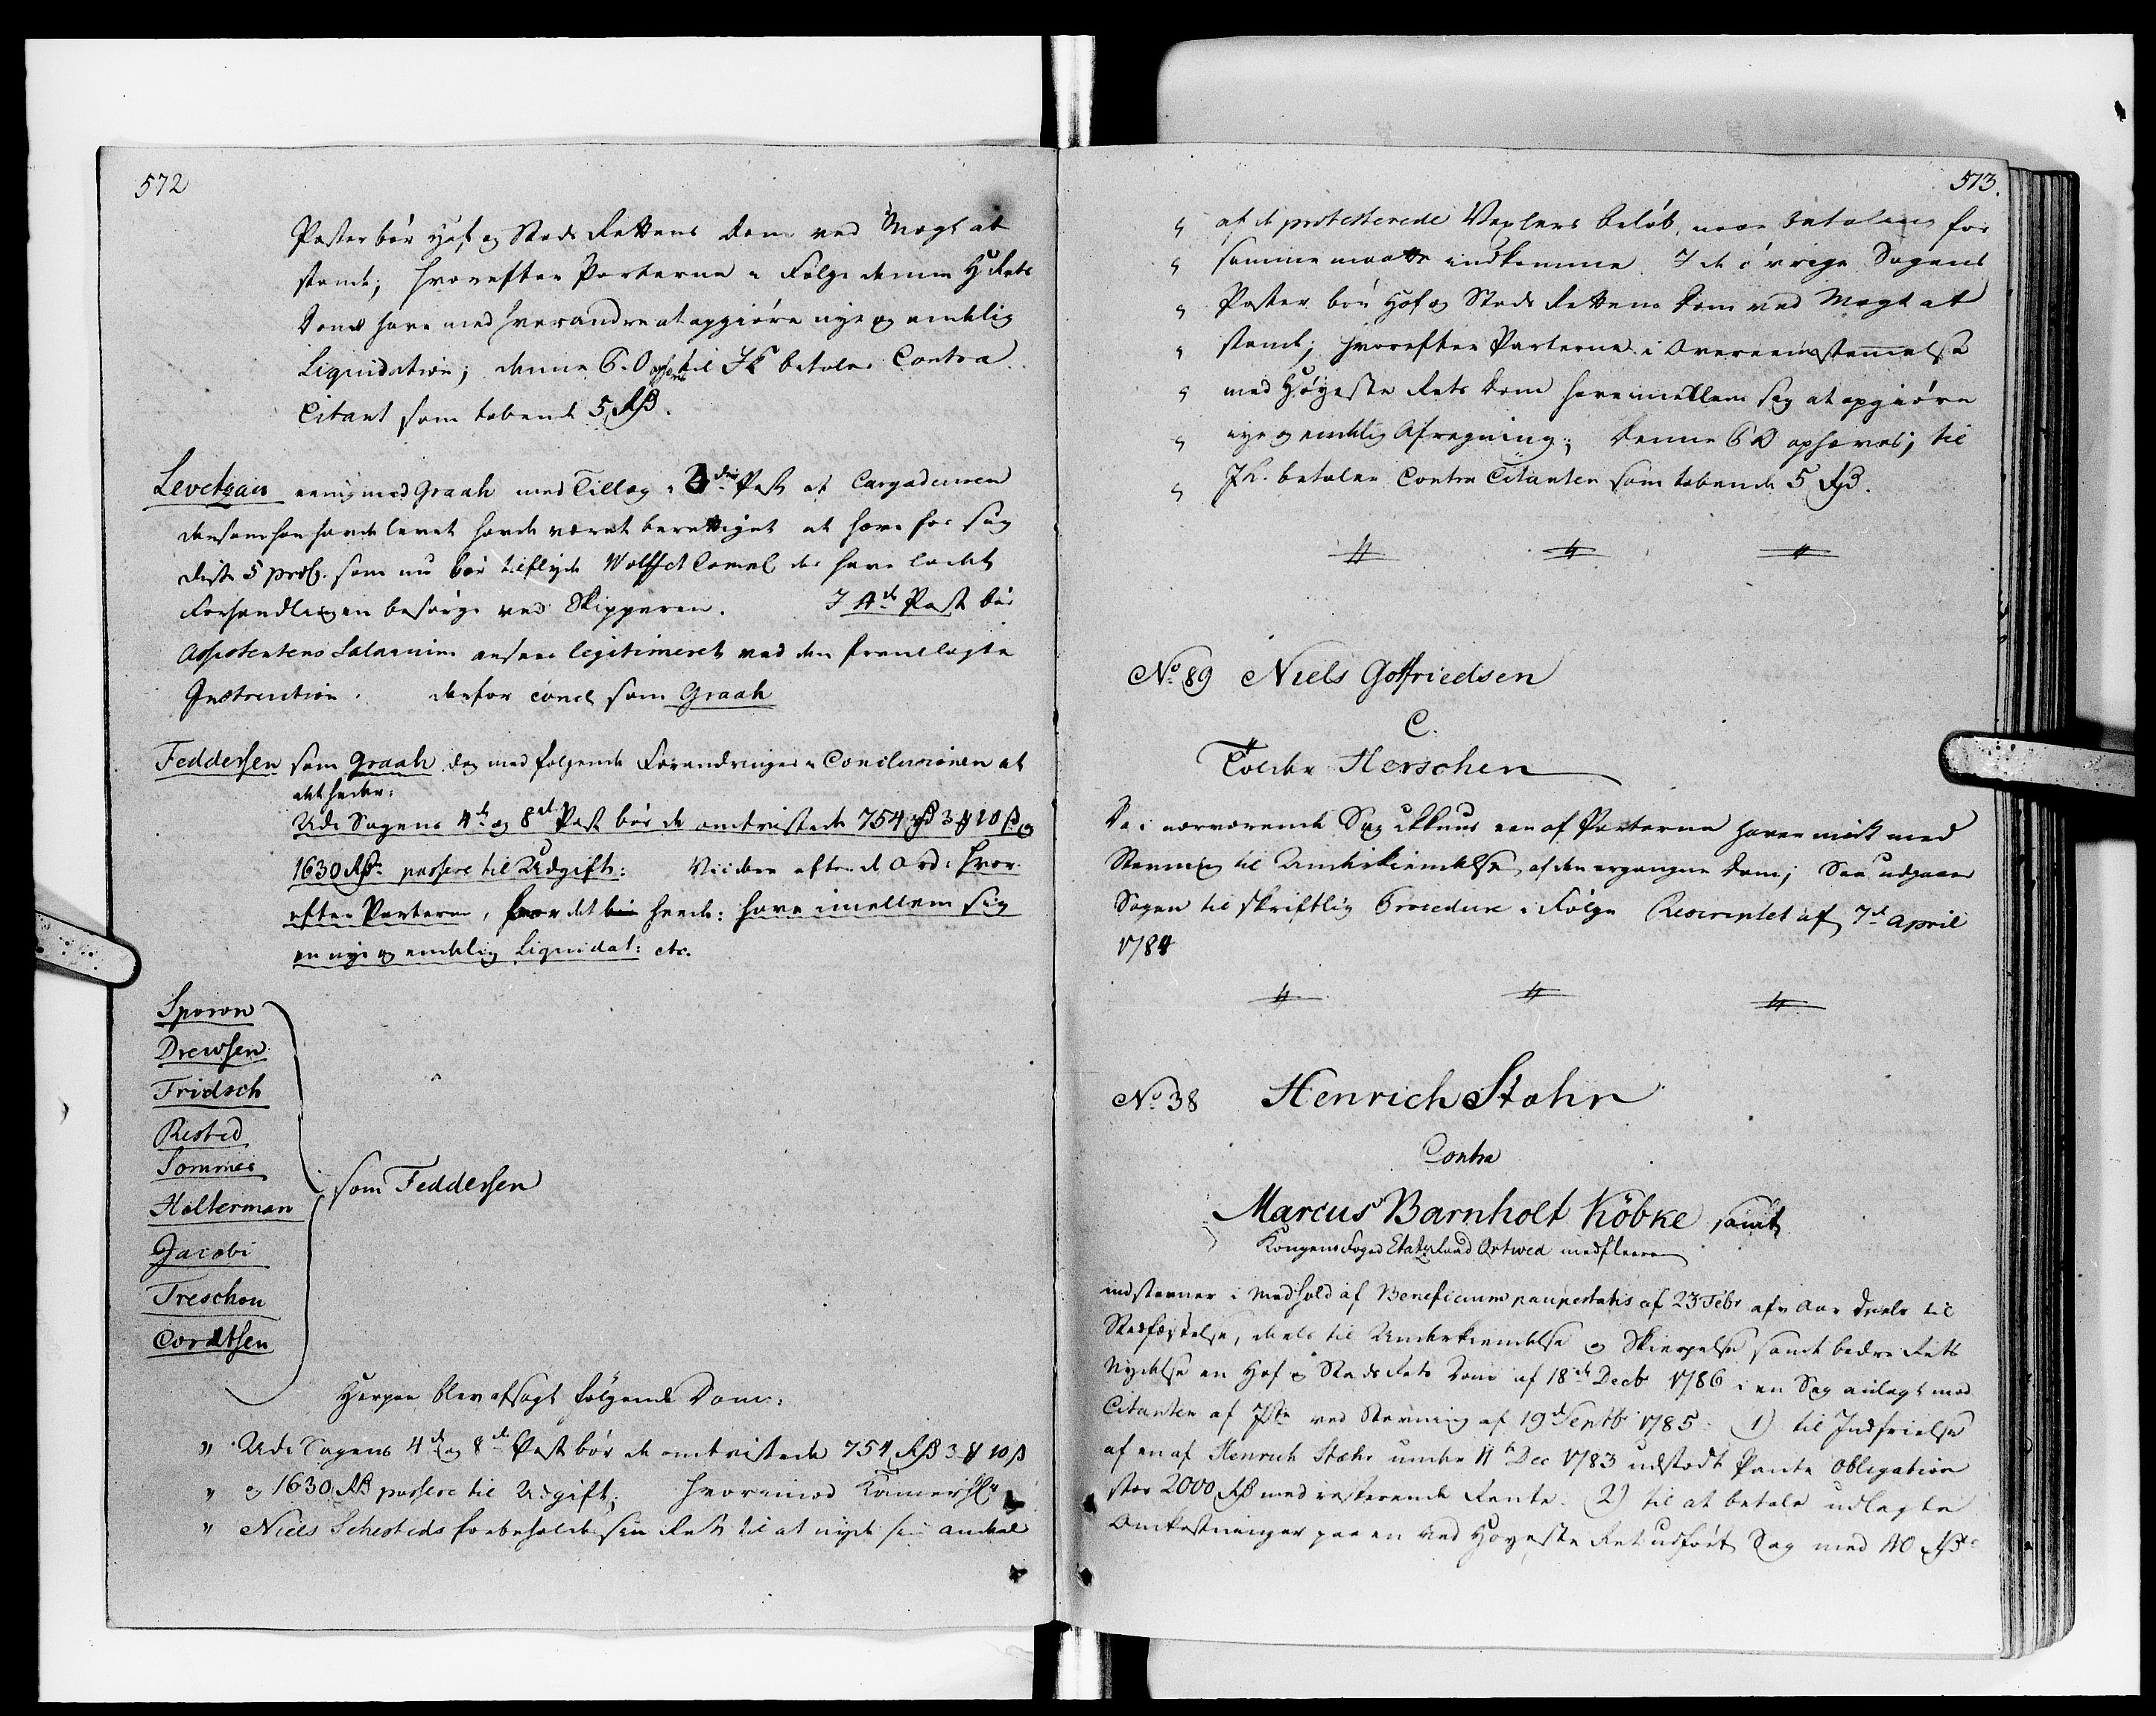 572
Poster bør Hof og Stads Rettens Dom ved Magt at
stande; hvorefter Parterne i Følge denne H Rets
Dom have med hverandre at opgiøre nye og endelig
Liquidation; denne 6. O ophæves til JK betaler Contra
Citant som tabende 5 Rd.
Levetzau eenig med Graah med Tillæg i 3die Post at Cargadeuren
dersom han havde levet havde været berettiget at have for sig
disse 5 proC. som nu bør tilflyde Wolff et Comp der have ladet
Forhandlingen besørge ved Skipperen. I 4de Post bør
Assistentens Salarium ansees legitimeret ved den fremlagte
Instruction. derfor concl som Graah
Feddersen som Graah dog med følgende Forandringer i Conclusionen at
det heder:
Udi Sagens 4de og 8de Post bør de omtvistede 754 rd 3 # 10 ß og
1630 Rd passere til Udgift: Viidere efter de Ord: hvor
efter Parterne, hvor det bør heede: have imellem sig
en nye og endelig Liquidat: etc.
Sporon
Drewsen
Fridsch
Rested
Sommer
Halterman
Jacobi
Treschou
Cordtsen
som Feddersen
Herpaa blev afsagt følgende Dom:
" Udi Sagens 4de og 8de Post bør de omtvistede 754 Rd 3 # 10 ß
" og 1630 Rd passere til Udgift; hvorimod Kammerh
" Niels Schesteds forbeholdes sin Ret til at nyde sin Andeel
573.
" af de protesterede Vexlers Beløb, naar Betaling for
" samme maatte indkomme. I de øvrige Sagens
" Poster bør Hof og Stads Rettens Dom ved Magt at
" stande; hvorefter Parterne i Overeensstemmelse
" med Høyeste Rets Dom have imellem sig at opgiøre
" nye og endelig Afregning; Denne 6 O ophæves; til
" JK. betaler Contra Citanten som tabende 5 Rd.
No. 89 Niels Gotfriedsen
C.
Tolder Herschen
Da i nærværende Sag ikkuns een af Parterne haver mødt med
Stevning til Underkiendelse af den ergangne Dom; Saa udgaaer
Sagen til skriftlig Procedure i Følge Rescriptet af 7de April
1784
No. 38 Henrich Stæhr
Contra
Marcus Barnholt Köbke samt
Kongens Foged Etatsraad Ortwed med fleere
indstævner i Medhold af Beneficium paupertatis af 23 Febr afv Aar deels til
Stadfæstelse, deels til Underkiendelse og Skierpelse samt bedre Rets
Nydelse en Hof og Stads Rets Dom af 18de Decb 1786 i en Sag anlagt mod
Citanten af Jste ved Stevning af 19de Septb 1785. 1) til Indfrielse
af en af Henrich Stæhr under 11te Dec 1783 udstædt Pante Obligation
stor 2000 Rd med resterende Rente. 2) til at betale udlagte
Omkostninger paa en ved Høyeste Ret udført Sag med 40 Rd